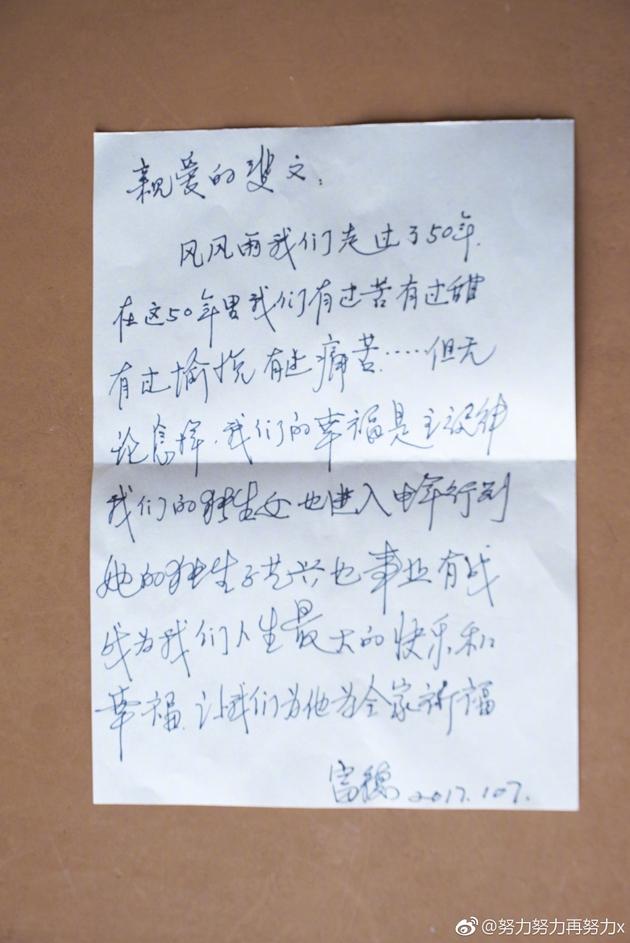 亲爱的斐文:
风风雨我们走过了50年.
在这50年里我们有过苦有过甜
有过愉悦 有过痛苦……但无
论怎样.我们的幸福是主旋律
我们的独生女也进入中年行列
她的独生子艺兴也事业有成
成为我们人生最大的快乐和
幸福.让我们为他为全家祈福
富德 2017.10.7.
@努力努力再努力x